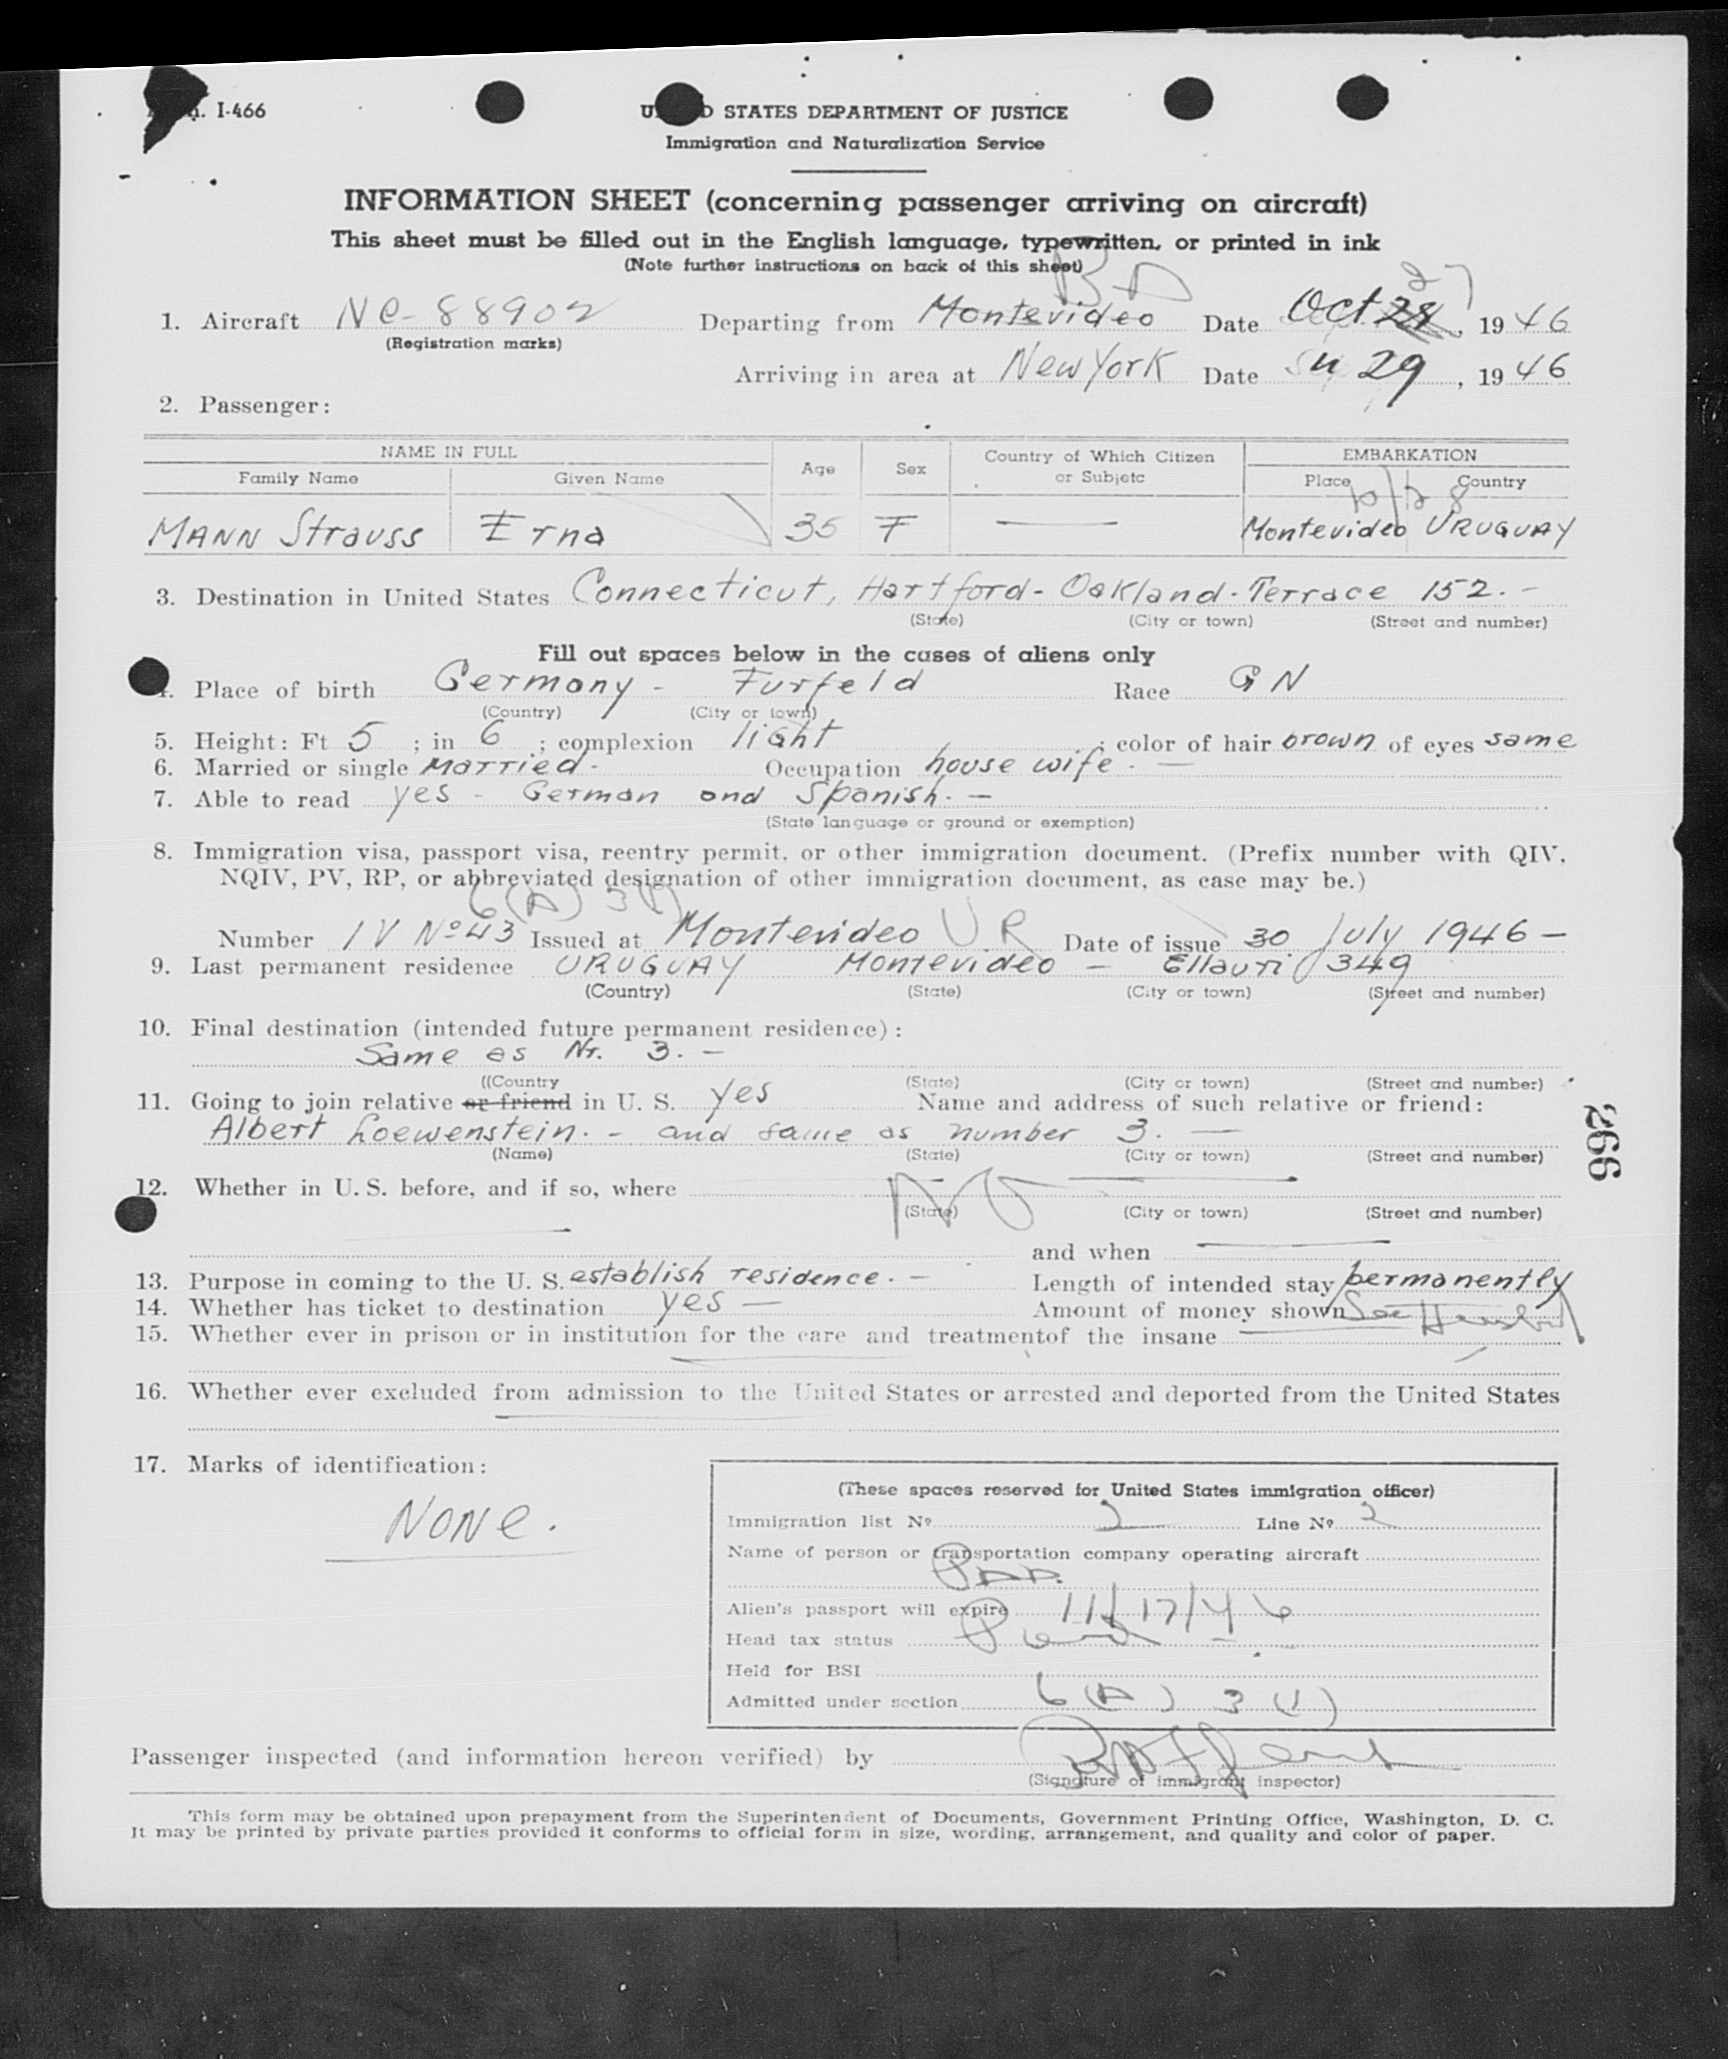 I-466
STATES DEPARTMENT OF JUSTICE
Immigration and Naturalization Service
INFORMATION SHEET (concerning passenger arriving on aircraft)
This sheet must be filled out in the English language, typewritten, or printed in ink
(Note further instructions on back of this sheet)
27
1. Aircraft NC-88902 Departing from Montevideo Date Oct 28, 1946
(Registration marks)
Arriving in area at New York Date " 29, 1946
2. Passenger:
NAME IN FULL Age Sex Country of Which Citizen or Subjetc EMBARKATION
Family Name Given Name Place Country
10/28
MANN Strauss Erna 35 F — Montevideo URUGUAY
3. Destination in United States Connecticut, Hartford - Oakland - Terrace 152. -
(State) (City or town) (Street and number)
Fill out spaces below in the cases of aliens only
4. Place of birth Germany - Furfeld Race GN
(Country) (City or town)
5. Height: Ft 5 ; in 6 ; complexion light ; color of hair brown of eyes same
6. Married or single Married - Occupation house wife. —
7. Able to read yes - German and Spanish. —
(State language or ground or exemption)
8. Immigration visa, passport visa, reentry permit, or other immigration document. (Prefix number with QIV,
NQIV, PV, RP, or abbreviated designation of other immigration document, as case may be.)
6(A) 3(1)
Number IV Nº 43 Issued at Montevideo UR Date of issue 30 July 1946 —
9. Last permanent residence URUGUAY Montevideo - Ellauri 349
(Country) (State) (City or town) (Street and number)
10. Final destination (intended future permanent residence):
Same as Nr. 3. -
((Country (State) (City or town) (Street and number)
11. Going to join relative or friend in U. S. yes Name and address of such relative or friend:
Albert Loewenstein. - and same as number 3. —
(Name) (State) (City or town) (Street and number)
266
12. Whether in U. S. before, and if so, where NO —
(State) (City or town) (Street and number)
— and when —
13. Purpose in coming to the U. S. establish residence. - Length of intended stay permanently
14. Whether has ticket to destination yes — Amount of money shown See Husband
15. Whether ever in prison or in institution for the care and treatmentof the insane —
16. Whether ever excluded from admission to the United States or arrested and deported from the United States
17. Marks of identification:
None.
(These spaces reserved for United States immigration officer)
Immigration list Nº 2 Line Nº 2
Name of person or transportation company operating aircraft
PAA.
Alien's passport will expire 11/17/46
Head tax status Paid -
Held for BSI
Admitted under section 6(A) 3(1)
Passenger inspected (and information hereon verified) by
(Signature of immigrant inspector)
This form may be obtained upon prepayment from the Superintendent of Documents, Government Printing Office, Washington, D. C.
It may be printed by private parties provided it conforms to official form in size, wording, arrangement, and quality and color of paper.